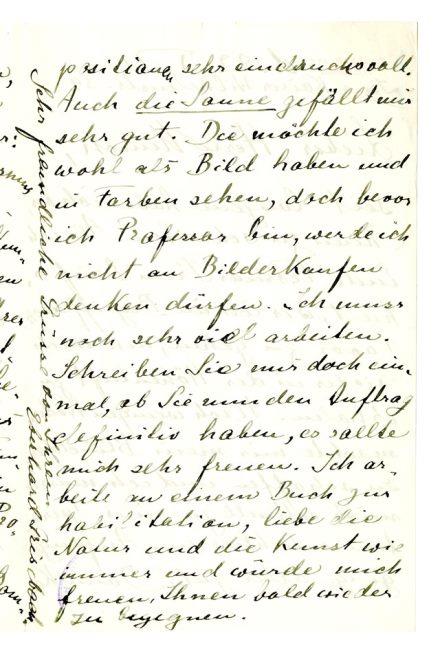 positionen sehr eindrucksvoll.
Auch die Sonne gefällt mir
sehr gut. Die möchte ich
wohl als Bild haben und
in Farben sehen, doch bevor
ich Professor bin, werde ich
nicht an Bilderkaufen
denken dürfen. Ich muss
noch sehr viel arbeiten.
Schreiben Sie mir doch ein-
mal, ob Sie nun den Auftrag
definitiv haben, es sollte
mich sehr freuen. Ich ar-
beite zu einem Buch zur
habilitation, liebe die
Natur und die Kunst wie
immer und würde mich
freuen, Ihnen bald wieder
zu begegnen.
Sehr freundliche Grüsse von Ihrem
Eberhard